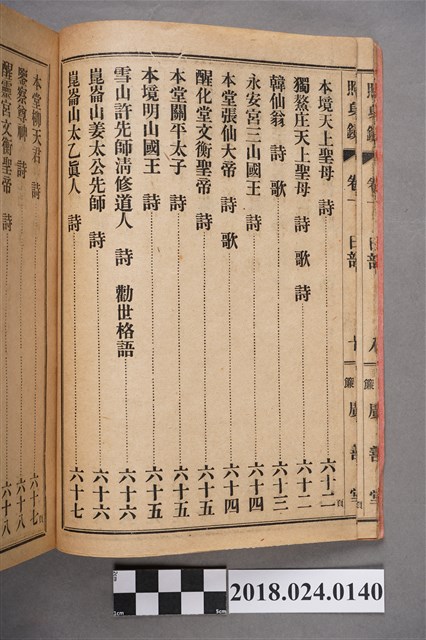 照身鏡 卷一 日部 八 廣善堂
照身鏡 卷一 日部 十 廣善堂
本境天上聖母 詩 六十二頁
獨鰲庄天上聖母 詩 歌 詩 六十二
韓仙翁 詩 歌 六十三
永安宮三山國王 詩 六十四
本堂張仙大帝 詩 歌 六十四
醒化堂文衡聖帝 詩 六十五
本堂關平太子 詩 六十五
本境明山國王 詩 六十五
雪山許先師清修道人 詩 勸世格語 六十六
崑崙山姜太公先師 詩 六十六
崑崙山太乙眞人 詩 六十七
本堂柳天君 詩 六十七頁
鑒察尊神 詩 六十八
醒靈宮文衡聖帝 詩 六十八
2cm
1cm
5cm
2018.024.0140